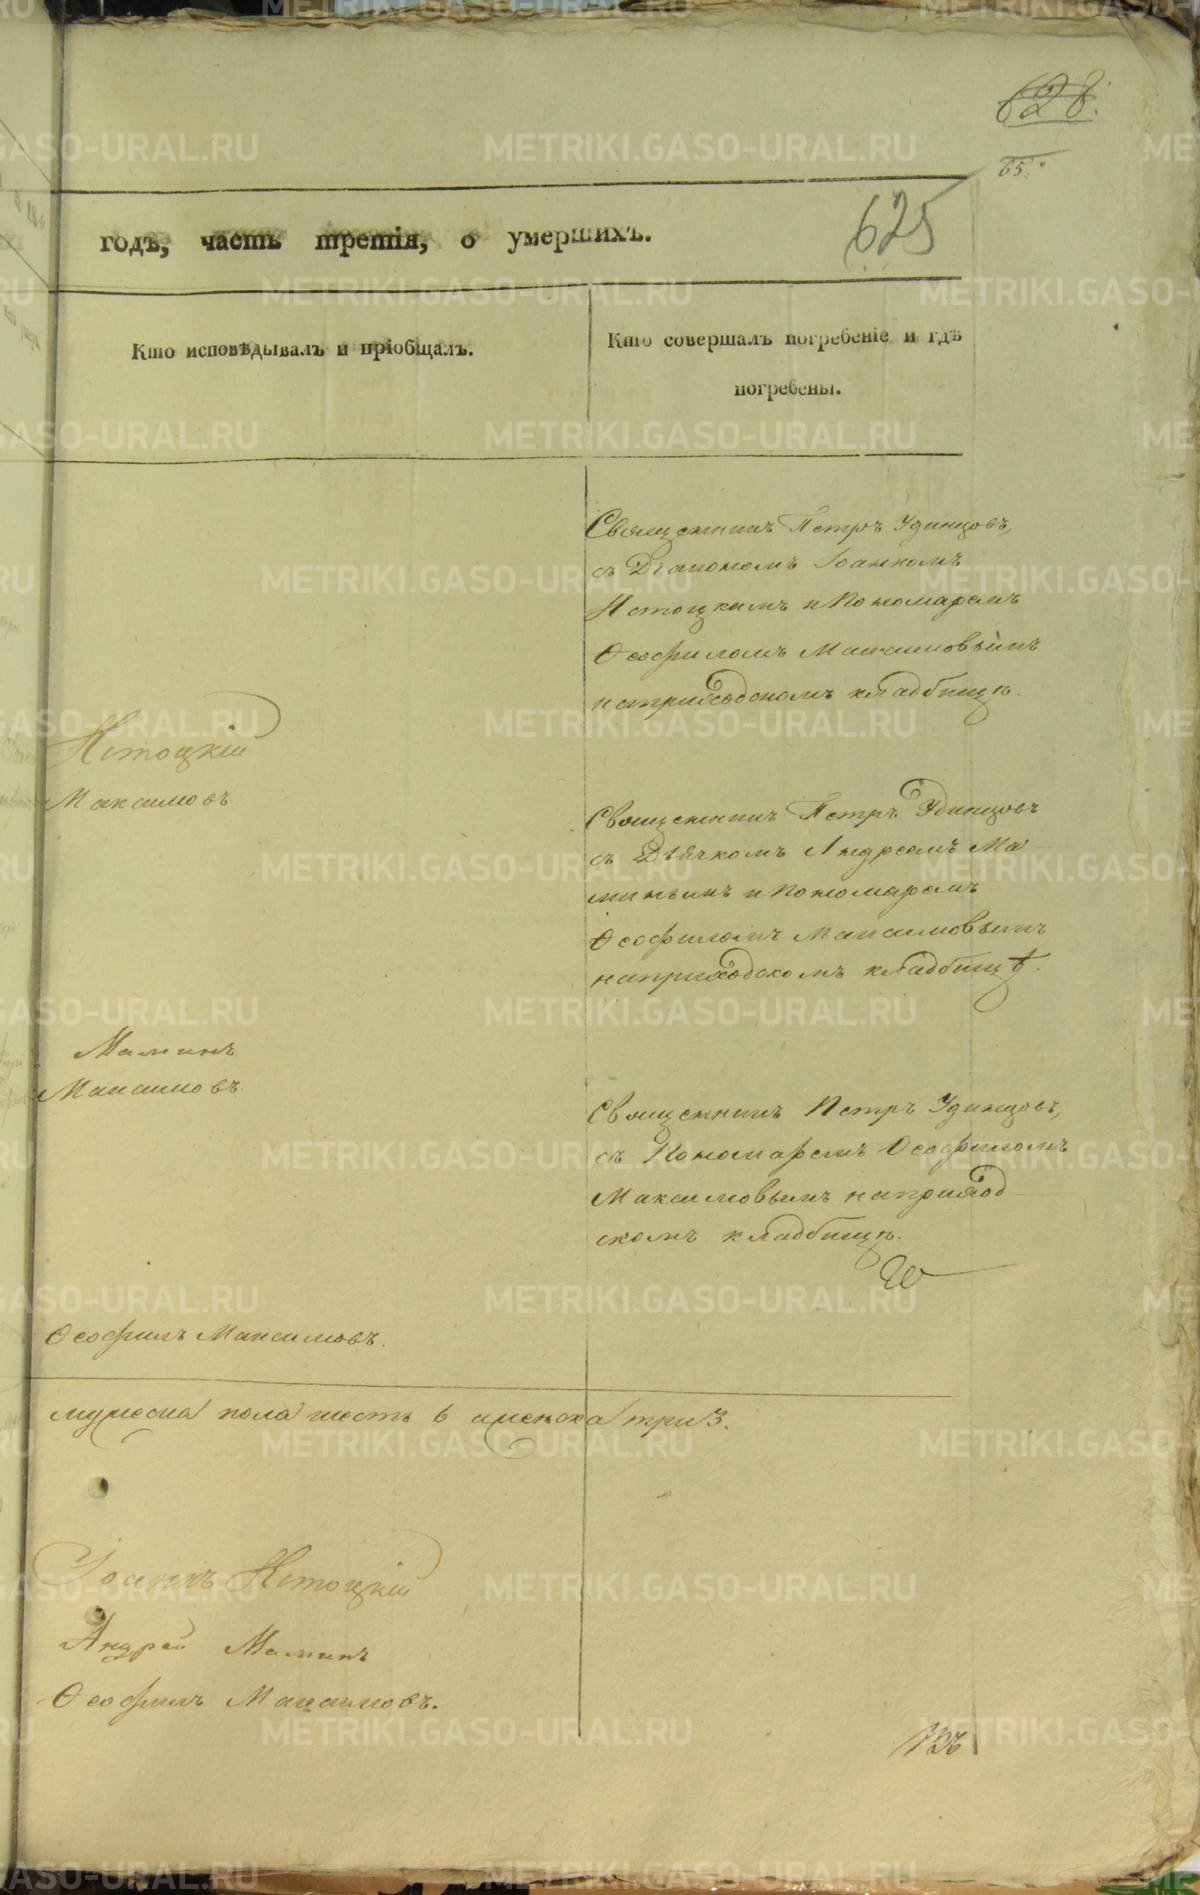 628.
65.
625
годъ, часть третія, о умершихъ.
Кто исповѣдывалъ и пріобщалъ.
Кто совершалъ погребеніе и гдѣ
погребены.
Священникъ Петръ Удинцовъ,
съ Діакономъ Іоанномъ
Истоцкимъ и Пономаремъ
Ѳеофиломъ Максимовымъ
на приходскомъ кладбищѣ.
Истоцкій
Максимовъ
Священникъ Петръ Удинцовъ
съ Дьячкомъ Андреемъ Ма
минымъ и Пономаремъ
Ѳеофиломъ Максимовымъ
на приходскомъ кладбищѣ.
Маминъ
Максимовъ
Священникъ Петръ Удинцовъ,
съ Пономаремъ Ѳеофиломъ
Максимовымъ на приход
скомъ кладбищѣ.
Ѳеофилъ Максимовъ.
мужеска пола шесть 6 а женска три 3.
Іоаннъ Истоцкій
Андрей Маминъ
Ѳеофилъ Максимовъ.
METRIKI.GASO-URAL.RU